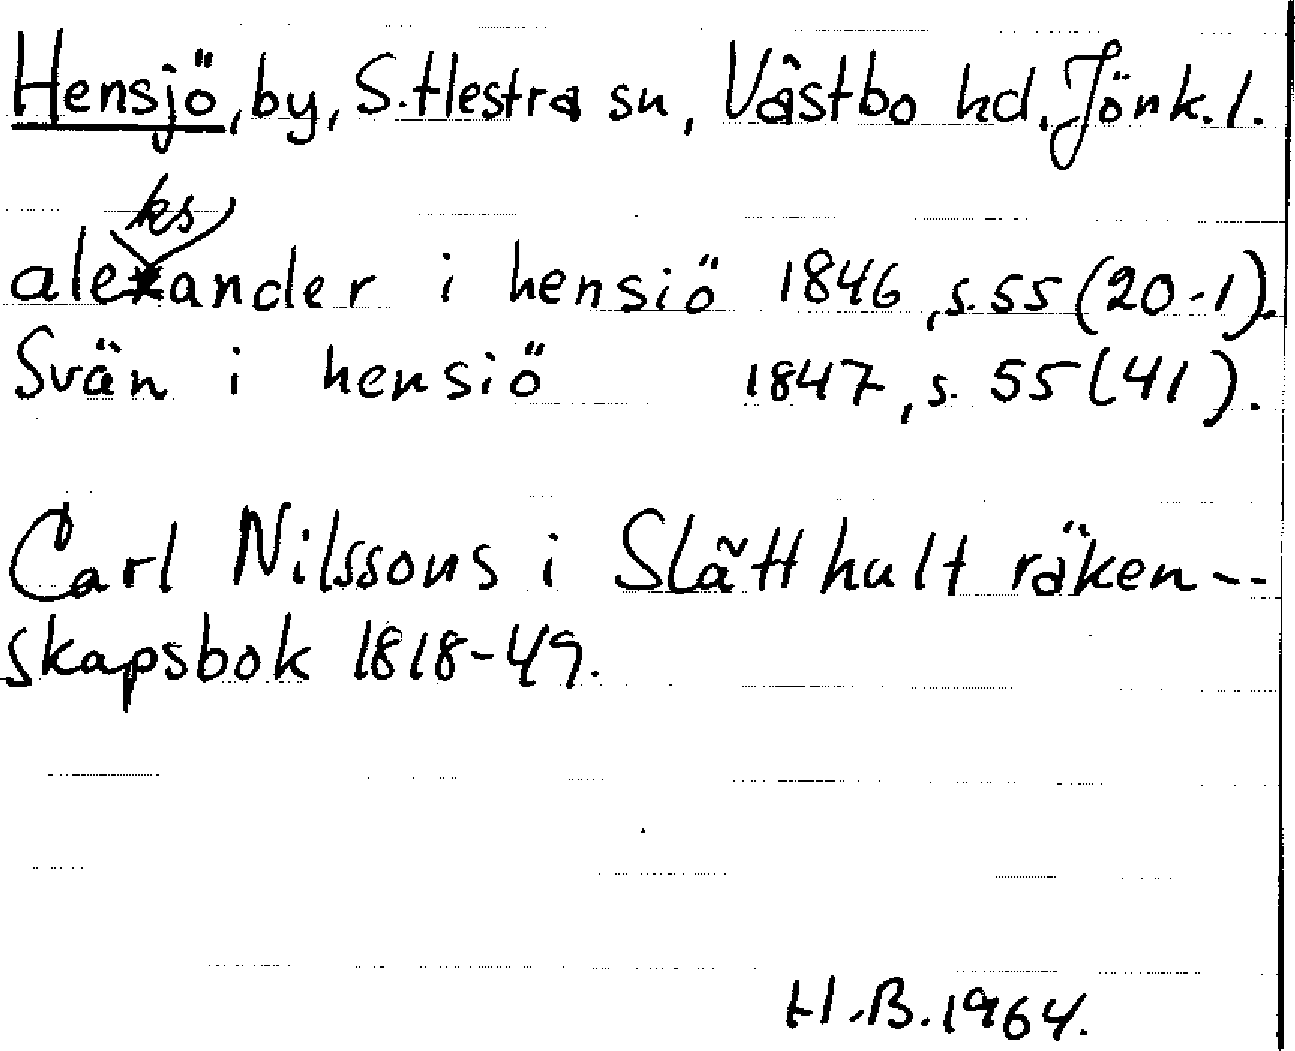 Hensjö, by, S. Hestra sn, Västbo hd, Jönk. l.
aleksander i hensiö 1846, s. 55 (20-1).
Svän i hensiö 1847, s. 55 (41).
Carl Nilssons i Slätthult räken--
skapsbok 1818-49.
H.B. 1964.